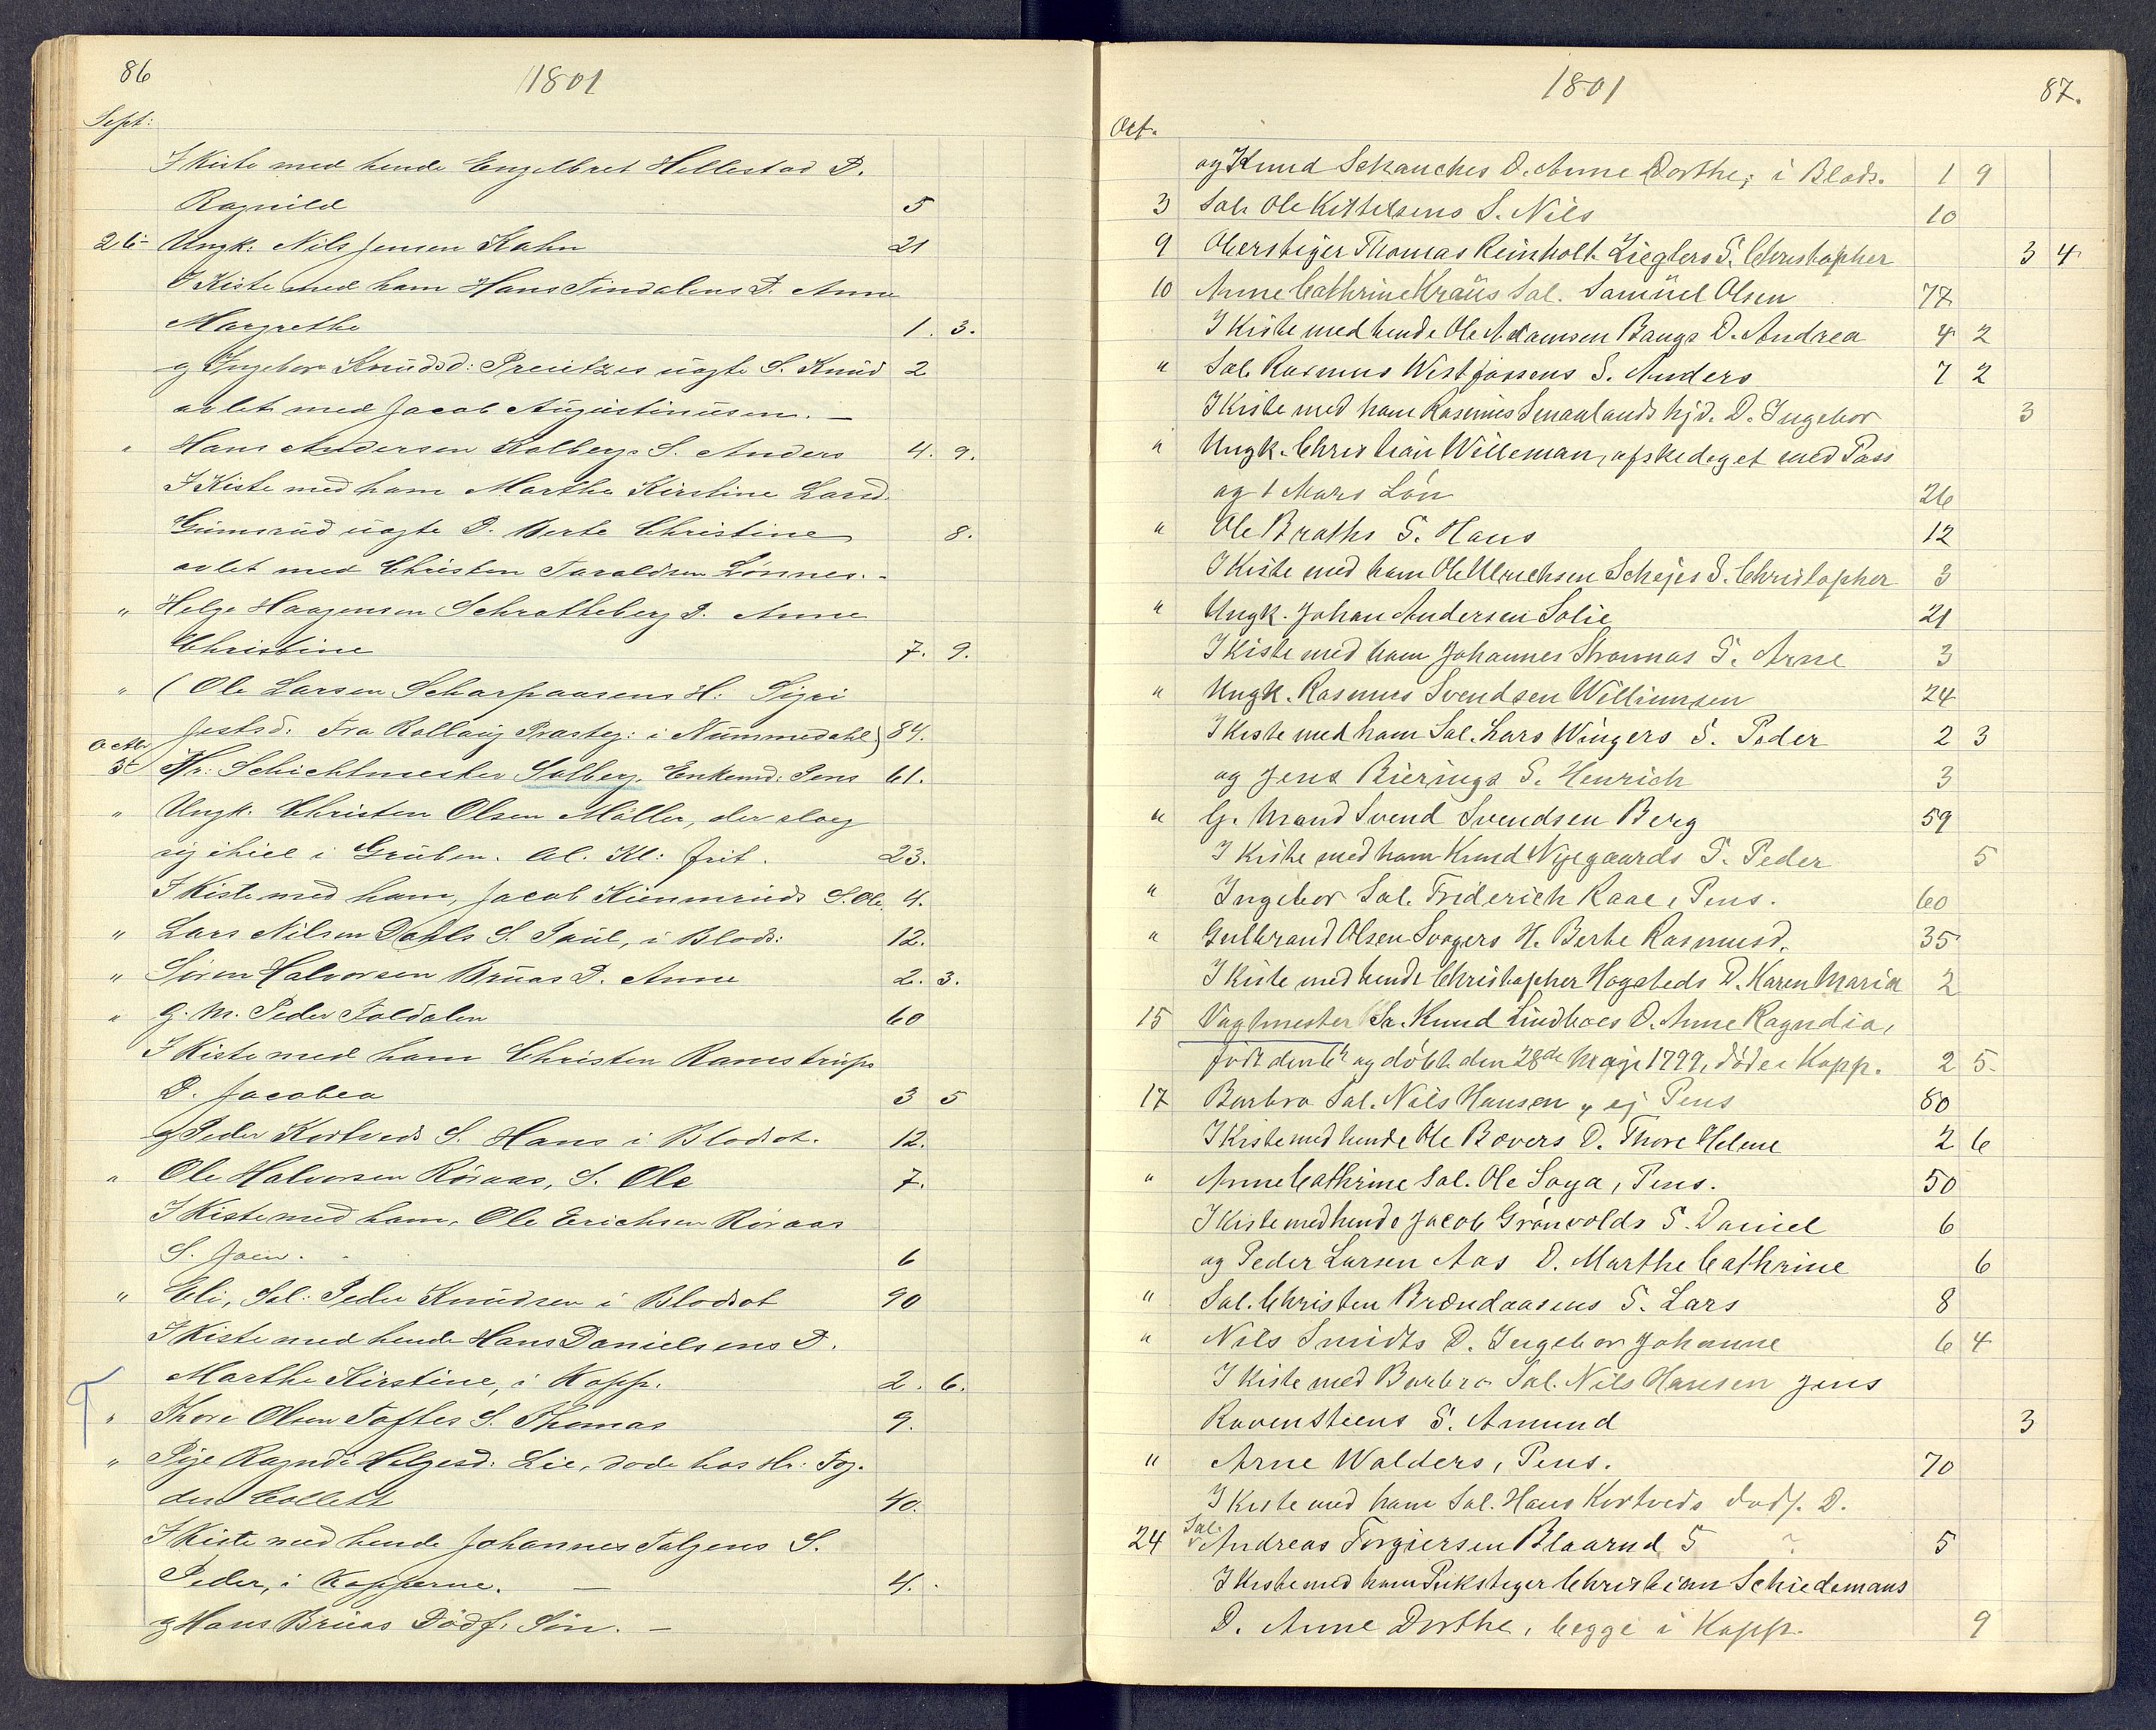 86
1801
Sept:
I Kiste med hende Engelbret Hellestad D.
Ragnild 5
26 Ungk: Nils Jensen Kahn 21
I Kiste med ham Hans Tindalens D. Anne
Margrethe 1. 3.
og Ingebor Knüdsd: Preützes üægte S. Knüd 2
avlet med Jacob Augüstinüsen. —
" Hans Andersen Kolbergs S. Anders 4. 9.
I Kiste med ham Marthe Kirstine Larsd.
Gümsrüd üægte D. Berte Christine 8.
avlet med Christen Taraldsen Lønnes. -
" Helge Haagensen Schratteberg D. Anne
Christine 7. 9.
" (Ole Larsen Scharpaasens H: Sigri
Jestsd: Fra Rollaug Præsteg: i Nümmedahl) 84.
Octbr
3 Hr: Schichtmester Solberg. Enkemd: Pens 61.
" Ungk. Christen Olsen Møller, der slog
sig ihiel i Grüben. Al. Kl: frit. 23.
I Kiste med ham, Jacob Kiemrüds S. Ole 4.
" Lars Nilsen Dahls S. Paül, i Blods: 12.
" Søren Halvorsen Brüas D. Anne 2. 3.
" G. M. Peder Foldalen 60
I Kiste med ham Christen Ramstrüps
D. Jacobea 3 5
og Peder Kortveds S. Hans i Blodsot. 12.
" Ole Halvorsen Røraas, S. Ole 7.
I Kiste med ham, Ole Erichsen Røraas
S. Joen. 6
" Eli, Sal: Peder Knüdsen i Blodsot 90
I Kiste med hende Hans Danielsens D.
Marthe Kirstine, i Kopp. 2. 6.
" Thore Olsen Toftes S. Thomas 9.
" Pige Ragndi Helgesd: Lie, døde hos Hr: Fog-
den Collett 40.
I Kiste med hende Johannes Folgens S.
Peder, i Kopperne. — 4.
og Hans Brüas Dødf. Søn. —
1801
87.
Oct.
og Knud Schauches D. Anne Dorthe, i Blods. 1 9
3 Sal. Ole Kittelsens S. Nils 10
9 Oberstiger Thomas Reinholt Zieglers S. Christopher 3 4
10 Anne Cathrine Kraüs Sal. Samüel Olsen 77
I Kiste med hende Ole Adamsen Baugs D. Andrea 4 2
" Sal. Rasmus Westfossens S. Anders 7 2
I Kiste med ham Rasmus Smaalands hjd. D. Ingebor 3
" Ungk. Christian Willeman, afskediget med Pass
og 1 Mars Løn 26
" Ole Braths S. Hans 12
I Kiste med ham Ole Ulrichsen Schejes S. Christopher 3
" Ungk. Johan Andersen Solie 21
I Kiste med ham Johannes Stromnas S. Arne 3
" Ungk. Rasmus Svendsen Williumsen 24
I Kiste med ham Sal. Lars Wingers S. Peder 2 3
og Jens Bierings S. Henrich 3
" G. Mand Svend Svendsen Berg 59
I Kiste med ham Knud Nyegaards S. Peder 5
" Ingebor Sal. Friderich Raae, Pens. 60
" Gulbrand Olsen Svagers H. Berte Rasmusd. 35
I Kiste med hende Christopher Hogsteds D. Karen Maria 2
15 Vagtmester Sr. Knud Lindhoes D. Anne Ragndia,
født den 6te og døbt den 28de Maji 1799, døde i Kopp. 2 5.
17 Barbro Sal. Nils Hansen, ej Pens 80
I Kiste med hende Ole Bovers D. Thore Helene 2 6
" Anne Cathrine Sal. Ole Soya, Pens. 50
I Kiste med hende Jacob Grønvolds S. Daniel 6
og Peder Larsen Aas D. Marthe Cathrine 6
" Sal. Christen Brændaasens S. Lars 8
" Nils Smidts D. Ingebor Johanne 6 4
I Kiste med Barbro Sal. Nils Hansen Jens
Ravensteens S. Amund 3
" Arne Walders, Pens. 70
I Kiste med ham Sal. Hans Kortveds dødf. D.
24 Sal. Andreas Torgiersen Blaarud S ? 5
I Kiste med ham Pukstiger Christian Schiedemans
D. Anne Dorthe, begge i Kopp. 9